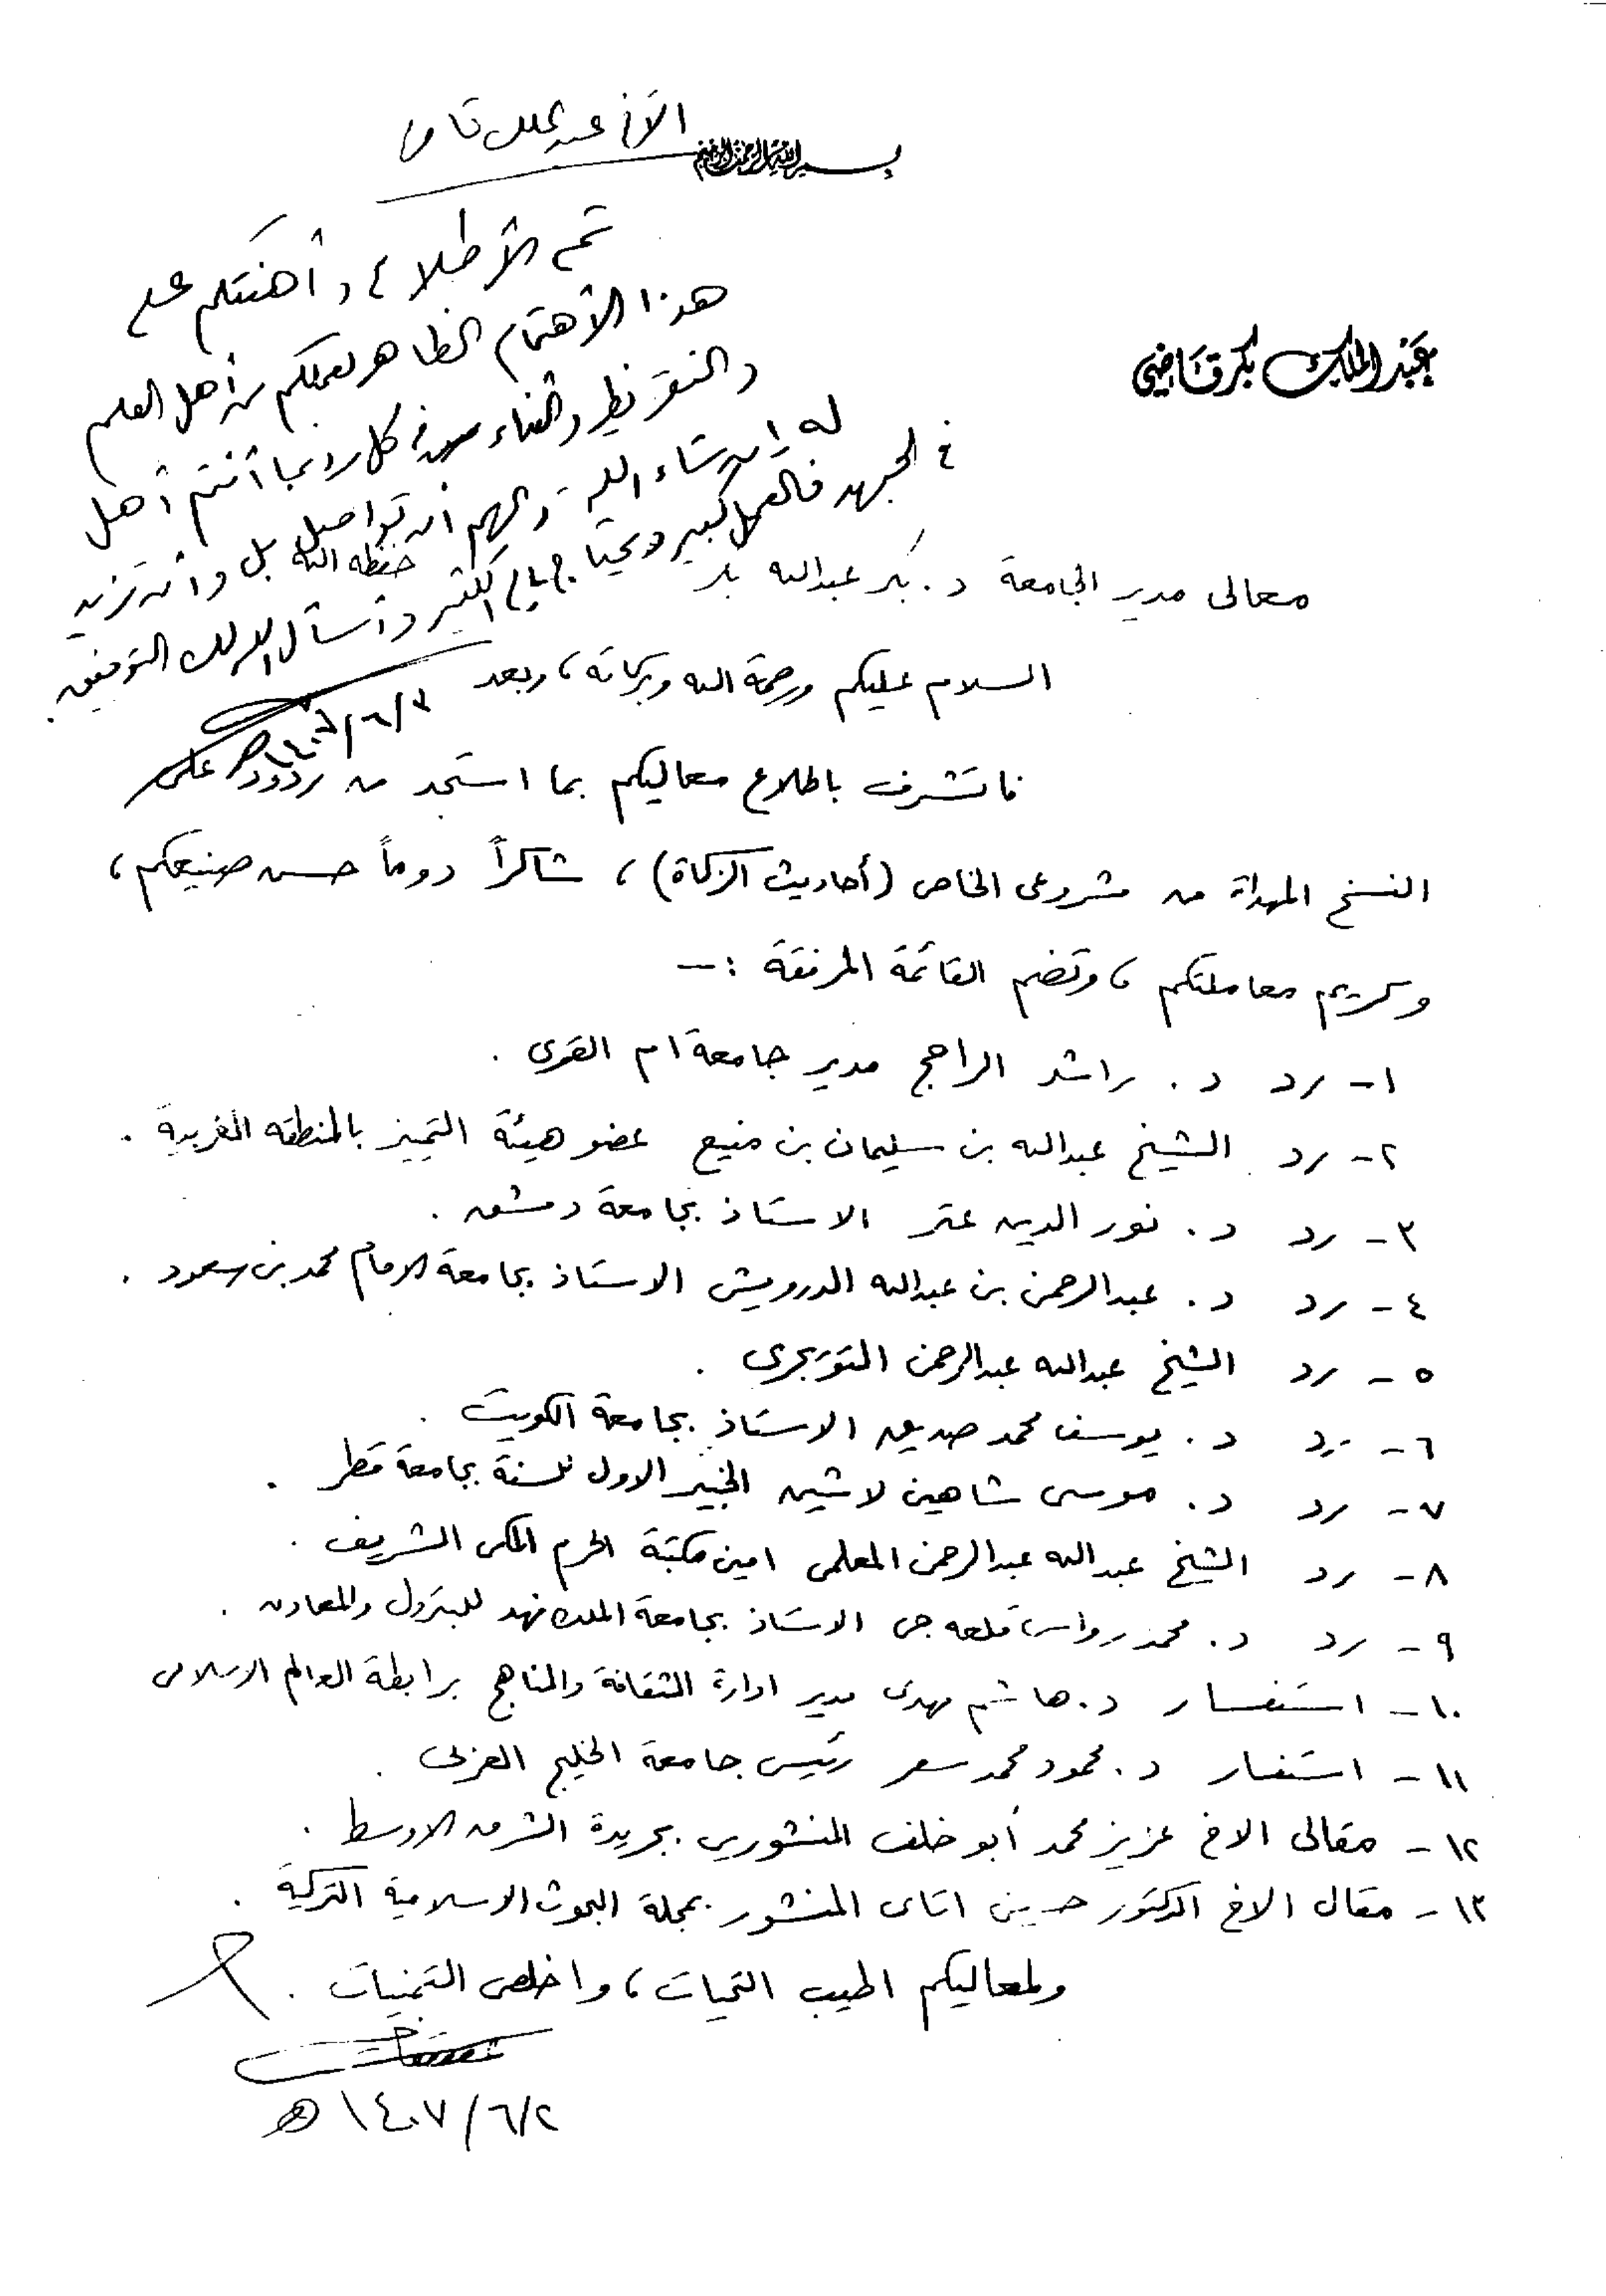 بسم الله الرحمن الرحيم
عبد الملك بكر قاضي
الأخ عبد الملك قاضي
تم الأطلاع، وأهنئكم على
هذا الأهتمام الظاهر لعملكم من أهل العلم
والتقريظ والثناء كل ردبما أنتم أهل
له إن شاء الله والمهم أن تواصل بل وأن تزيد
في الجهد فالعمل كبير ويحتاج إلى الكثير وأسأل الله لك التوفيق.
١٤٠٧/٦/٣هـ
معالى مدير الجامعة د. بكر عبدالله بكر حفظه الله
السلام عليكم ورحمة الله وبركاته، وبعد
فاتشرف باطلاع معاليكم بما استجد من ردود على
النسخ المهداة من مشروعى الخاص (أحاديث الزكاة)، شاكراً دوماً حسن صنيعكم،
وكريم معاملتكم، وتضم القائمة المرفقة :-
١- رد د. راشد الراجح مدير جامعة ام القرى.
٢- رد الشيخ عبدالله بن سليمان بن منيع عضو هيئة التمييز بالمنطقه الغربية.
٣- رد د. نور الدين عتر الاستاذ بجامعة دمشق.
٤- رد د. عبدالرحمن بن عبدالله الدرويش الاستاذ بجامعة الامام محمد بن سعود.
٥- رد الشيخ عبدالله عبدالرحمن التويجرى.
٦- رد د. يوسف محمد صديق الاستاذ بجامعة الكويت.
٧- رد د. موسى شاهين لاشين الخبير الاول للسنة بجامعة قطر.
٨- رد الشيخ عبدالله عبدالرحمن المعلمى امين مكتبة الحرم المكى الشريف.
٩- رد د. محمد رواس قلعه جى الاستاذ بجامعة الملك فهد للبترول والمعادن.
١٠- استفسار د. هاشم مهدى مدير ادارة الثقافة والمناهج برابطة العالم الاسلامى
١١- استفسار د. محمود محمد سفر رئيس جامعة الخليج العربى.
١٢- مقالى الاخ عزيز محمد أبو خلف المنشورين بجريدة الشرق الاوسط.
١٣- مقال الاخ الدكتور حسين اتاى المنشور بمجلة البحوث الاسلامية التركية.
ولمعاليكم اطيب التحيات، واخلص التمنيات.
١٤٠٧/٦/٢ هـ